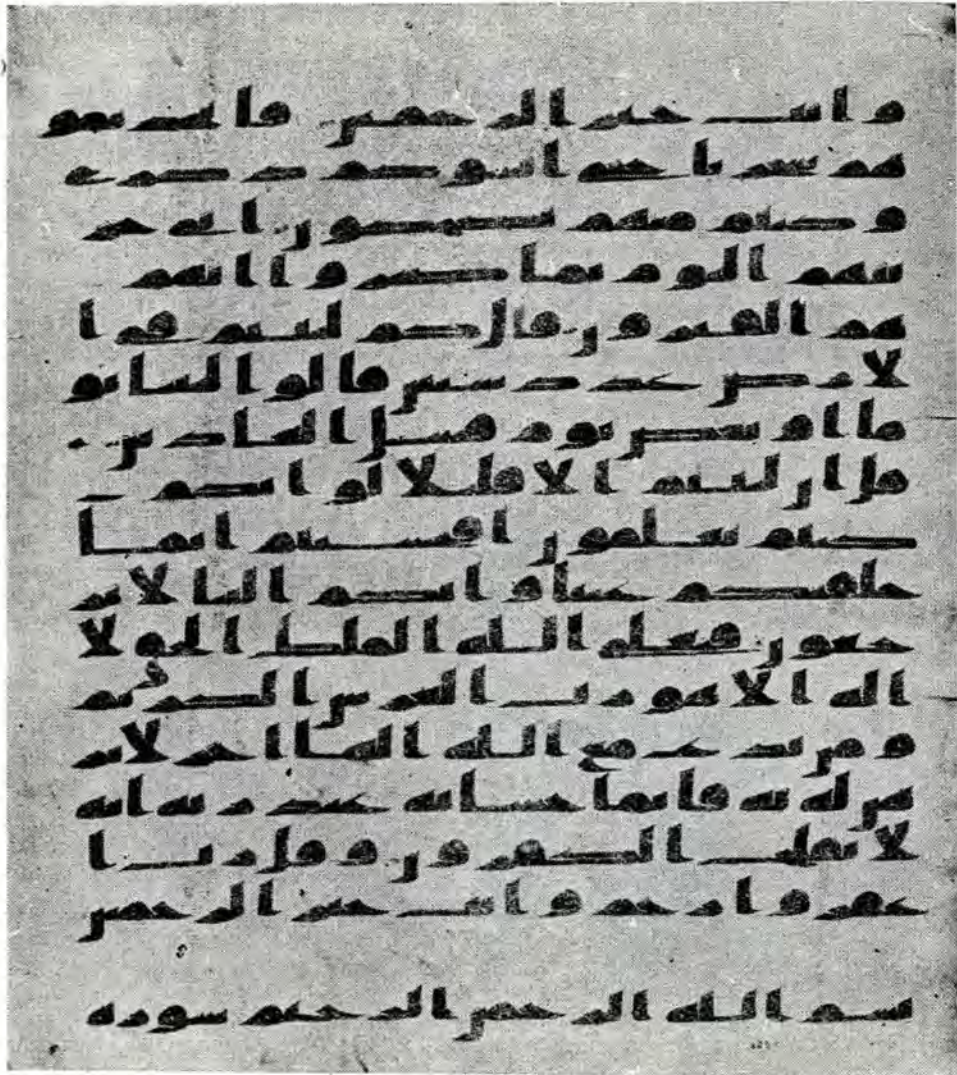 وانت خير الرحمين فاتخذتمو
هم سخريا حتى انسوكم ذكري
وكنتم منهم تضحكون اني جز
يتهم اليوم بما صبروا انهم
هم الفيزون قل كم لبثتم في ا
لارض عدد سنين قالوا لبثنا يو
ما او بعض يوم فسل العادين
قل ان لبثتم الا قليلا لو انكم
كنتم تعلمون افحسبتم انما
خلقنكم عبثا وانكم الينا لا تر
جعون فتعلى الله الملك الحق لا
اله الا هو رب العرش الكريم
ومن يدع مع الله الها اخر لا بر
هن له به فانما حسابه عند ربه انه
لا يفلح الكفرون وقل رب ا
غفر وارحم وانت خير الرحمين
بسم الله الرحمن الرحيم سورة